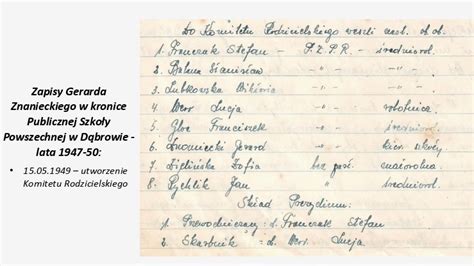 Zapisy Gerarda
Znanieckiego w kronice
Publicznej Szkoły
Powszechnej w Dąbrowie -
lata 1947-50:
• 15.05.1949 – utworzenie
Komitetu Rodzicielskiego
Do Komitetu Rodzicielskiego weszli nast. ob. ob.
1. Franczak Stefan – P.Z.P.R. – średniorol.
2. Stanisław –„– –„–
3. Lubkowska Wiktoria –„– –„–
4. Werr Łucja –„– robotnica
5. Franciszek –„– średniorol.
6. Znaniecki Gerard –„– kier. szkoły
7. Zielińska Zofia bez part. małorolna
8. Rychlik Jan –„– średniorol.
Skład Prezydium:
1. Przewodniczący: Franczak Stefan
2. Skarbnik: Werr Łucja.